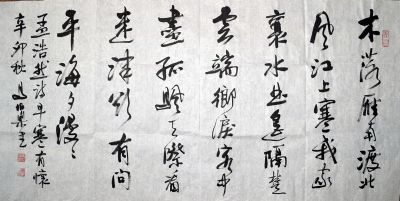 木落雁南渡北
風江上寒我家
襄水曲遙隔楚
雲端鄉淚客中
盡孤帆天際看
迷津欲有問
平海夕漫〻
孟浩然詩早寒有懷
辛卯秋